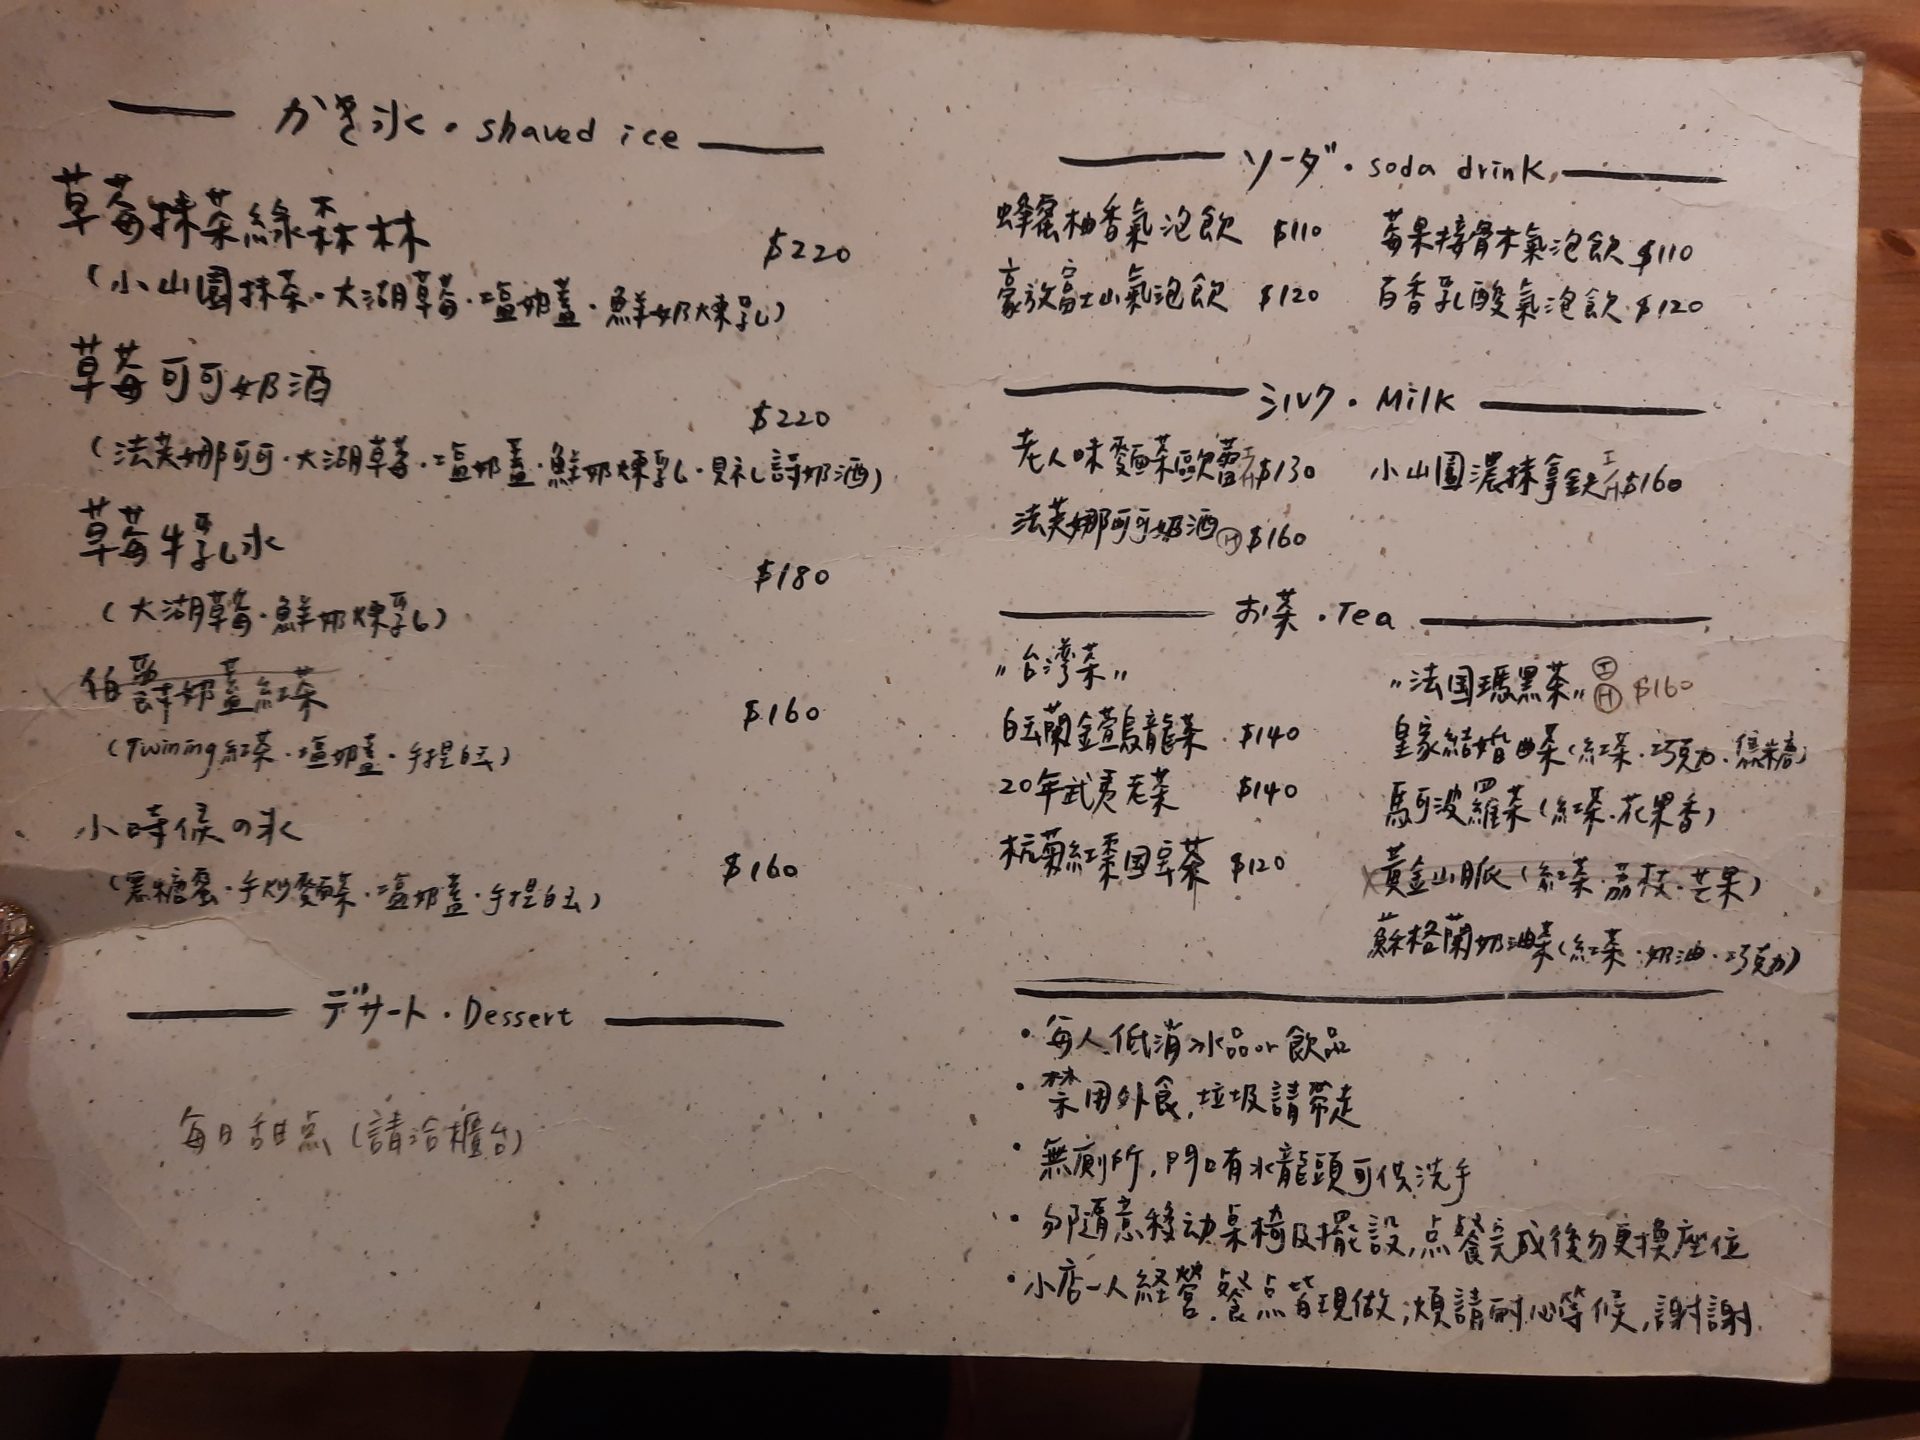 かき氷・shaved ice
草莓抹茶綠森林 $220
(小山園抹茶・大湖草莓・塩奶蓋・鮮奶煉乳)
草莓可可奶酒 $220
(法芙娜可可・大湖草莓・塩奶蓋・鮮奶煉乳・貝禮詩奶酒)
草莓牛乳冰 $180
(大湖草莓・鮮奶煉乳)
伯爵奶蓋紅茶 $160
(Twining紅茶・塩奶蓋・手捏白玉)
小時候の氷 $160
(黑糖蜜・手炒麵茶・塩奶蓋・手捏白玉)
デザート・Dessert
每日甜点(請洽櫃台)
ソーダ・soda drink
蜂蜜柚香氣泡飲 $110
莓果接骨木氣泡飲 $110
豪放富士山氣泡飲 $120
百香乳酸氣泡飲 $120
ミルク・Milk
老人味麵茶歐蕾 I/H $130
小山園濃抹拿鉄 I/H $160
法芙娜可可奶酒 H $160
お茶・Tea
"台灣茶"
白玉蘭金萱烏龍茶 $140
20年武夷老茶 $140
杭菊紅棗国宅茶 $120
"法国瑪黑茶" I H $160
皇家結婚曲茶(紅茶・巧克力・焦糖)
馬可波羅茶(紅茶・花果香)
黃金山脈(紅茶・荔枝・芒果)
蘇格蘭奶油茶(紅茶・奶油・巧克力)
・每人低消冰品or飲品
・禁用外食,垃圾請帶走
・無廁所,門口有水龍頭可供洗手
・勿隨意移动桌椅及擺設,点餐完成後勿更換座位
・小店一人経營,餐点皆現做,煩請耐心等候,謝謝